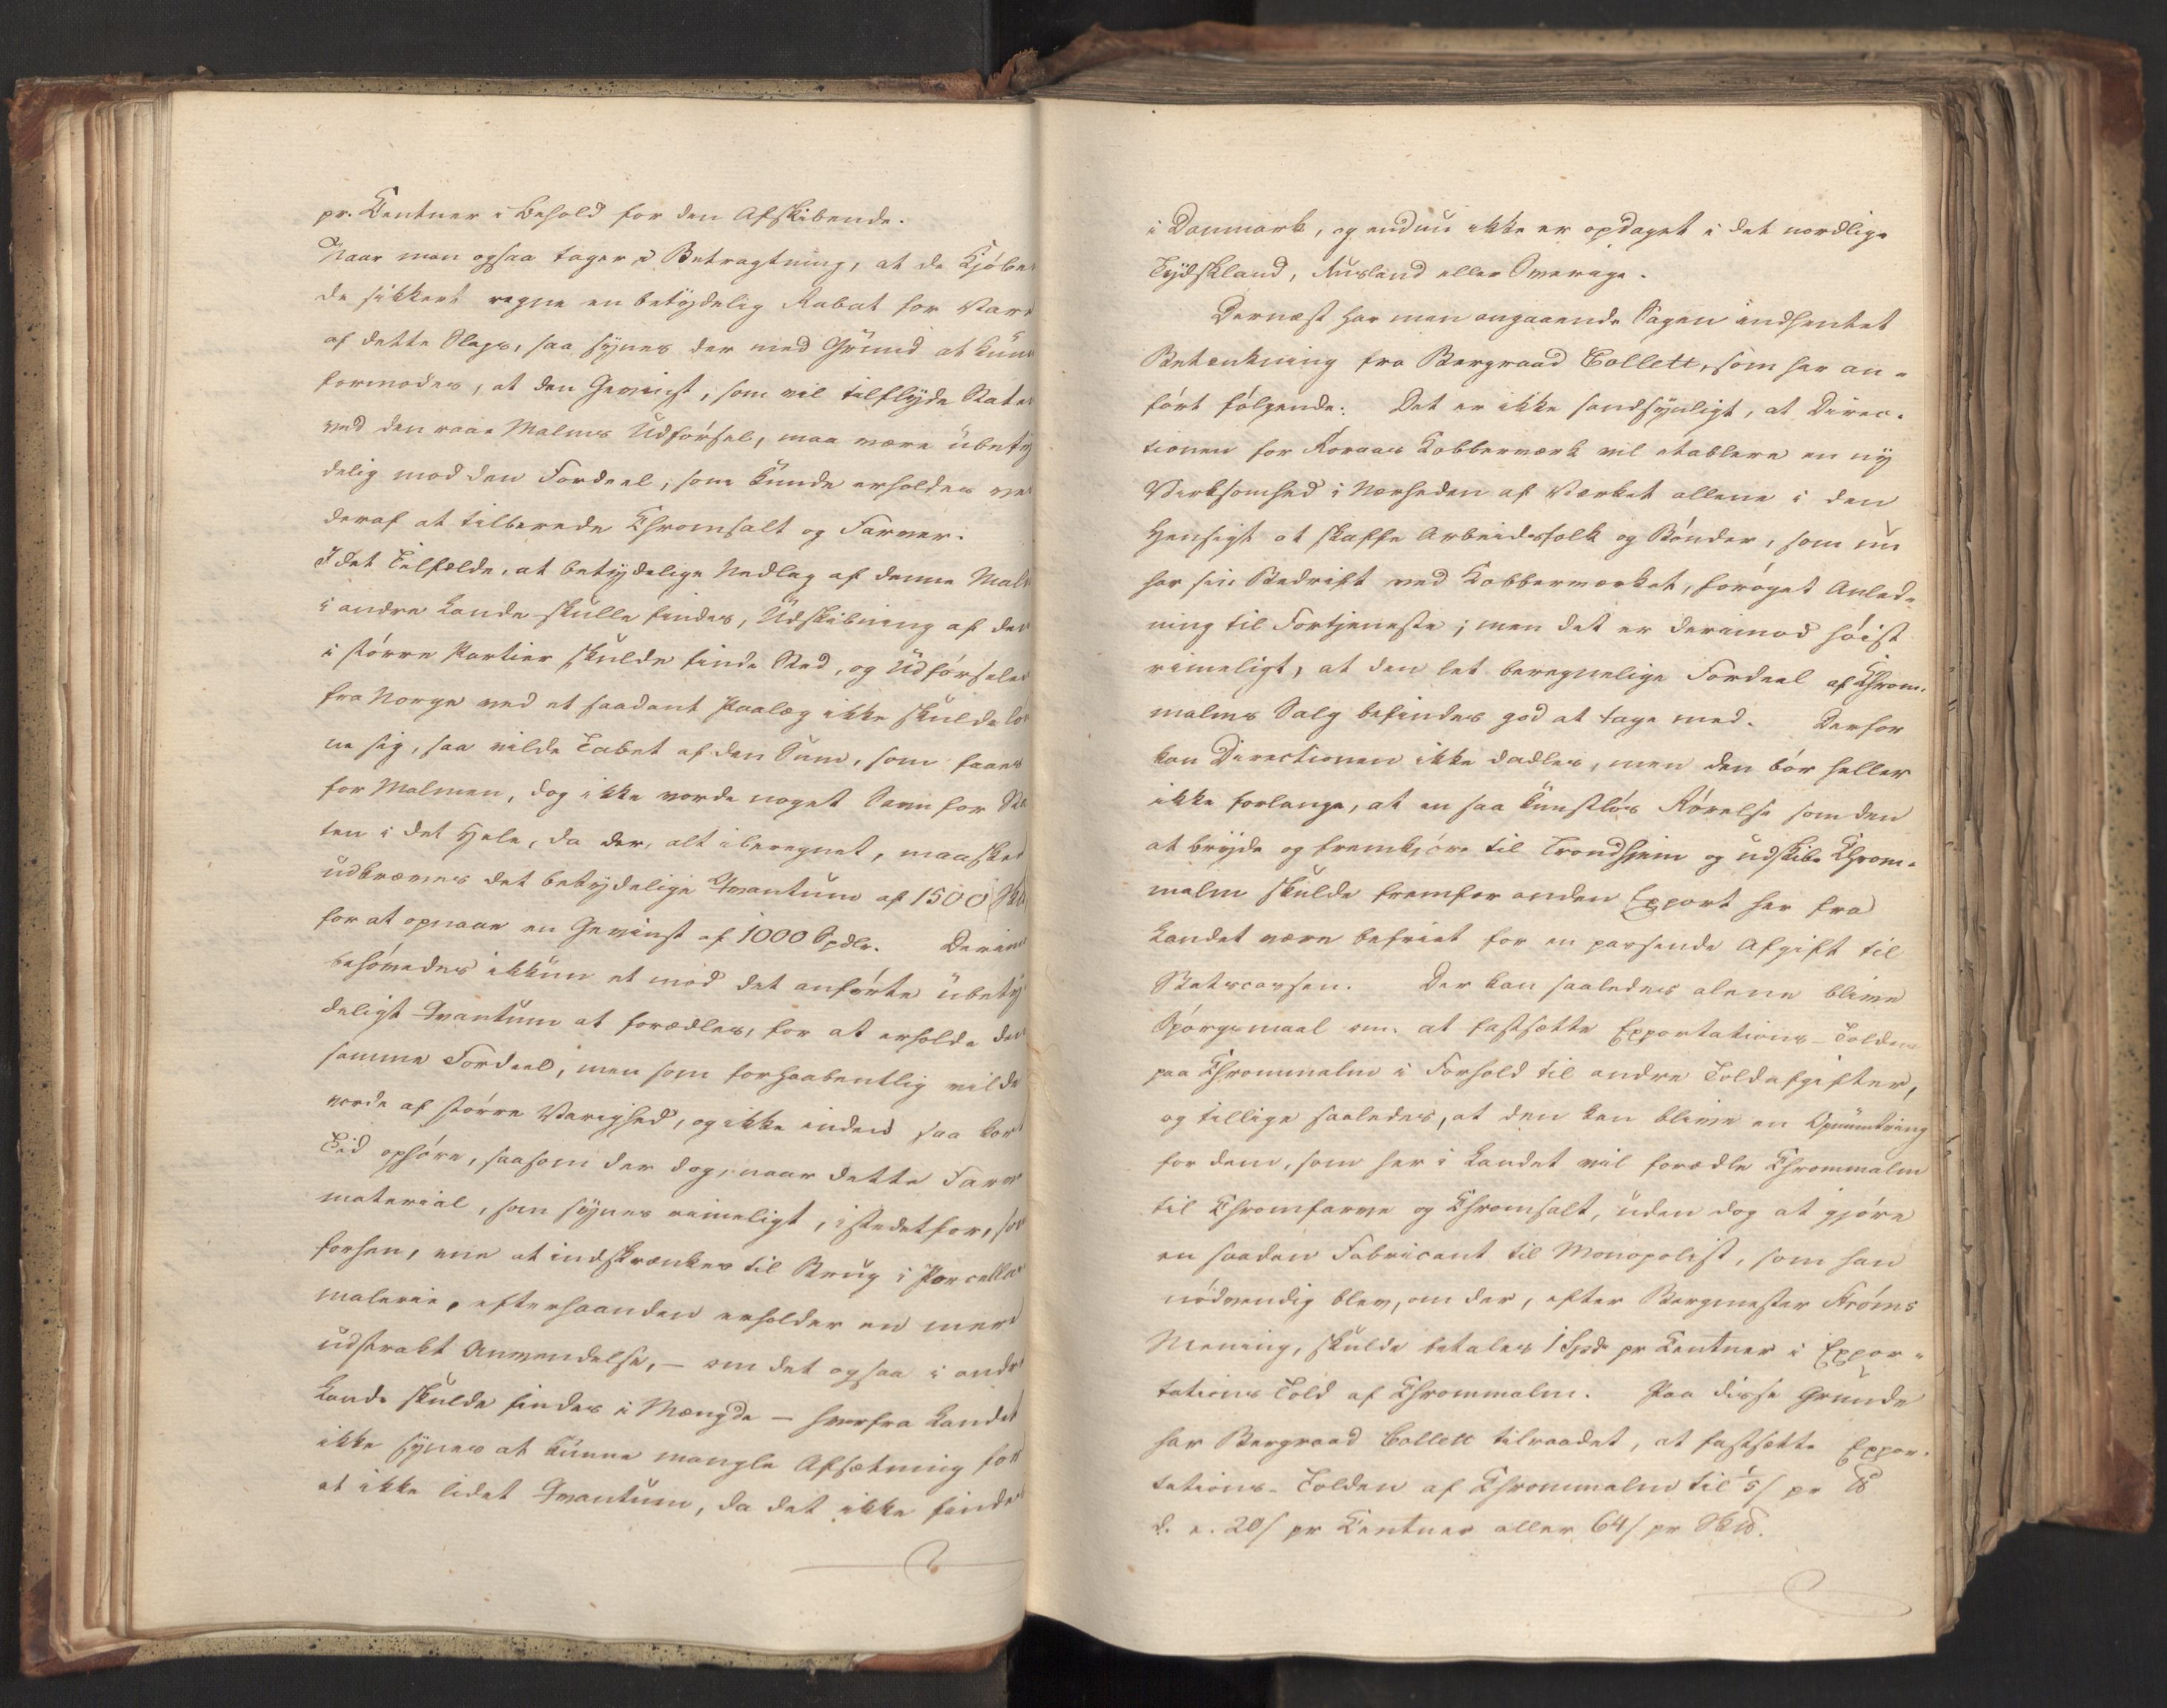 pr. Centner i Behold for den Afskibende.
Naar man ogsaa tager i Betragtning, at de Kjöben
de sikkert regne en betydelig Rabat for Vare
af dette Slags, saa synes der med Grund at kun
formodes, at den Gevinst, som vil tilflyde State
ved den raae Malms Udförsel, maa være ubety
delig mod den Fordeel, som kunde erholdes ve
deraf at tilberede Chromsalt og Farver.
I det Tilfælde, at betydelige Nedlag af denne Mal
i andre Lande skulle findes, Udskibning af de
i större Partier skulde finde Sted, og Udförselen
fra Norge ved et saadant Paalæg ikke skulde lön
ne sig, saa vilde Tabet af den Sum, som faaes
for Malmen, dog ikke vorde noget Savn for Sta
ten i det Hele, da der, alt iberegnet, maaskee
udkræves det betydelige Qvantum af 1500
for at opnaae en Gevinst af 1000 Spdlr. Derimod
behövedes ikkun et mod det anförte ubety
deligt Qvantum at forædles, for at erholde den
samme Fordeel, men som forhaabentlig vilde
vorde af större Varighed, og ikke inden saa kort
Tid ophöre, saasom der dog, naar dette Farve
material, som synes rimeligt, istedetfor, som
forhen, ene at indskrænkes til Brug i Porcellan
malerie, efterhaanden erholder en mere
udstrakt Anvendelse, – om det ogsaa i andre
Lande skulde findes i Mængde – herfra Landet
ikke synes at kunne mangle Afsætning for
et ikke lidet Qvantum, da det ikke findes
i Danmark, og endnu ikke er opdaget i det nordlige
Tydskland, Rusland eller Sverige.
Dernæst har man angaaende Sagen indhentet
Betænkning fra Bergraad Collett, som har an-
fört fölgende: Det er ikke sandsynligt, at Direc-
tionen for Röraas Kobberværk vil etablere en ny
Virksomhed i Nærheden af Værket allene i den
Hensigt at skaffe Arbeidsfolk og Bönder, som nu
har sin Bedrift ved Kobberværket, foröget Anled-
ning til Fortjeneste; men det er derimod höist
rimeligt, at den let beregnelige Fordeel af Chrom-
malms Salg befindes god at tage med. Derfor
kan Directionen ikke dadles, men den bör heller
ikke forlange, at en saa kunstlös Rörelse som den
at bryde og fremkjöre til Trondhjem og udskibe Chrom-
malm skulde fremfor anden Export her fra
Landet være befriet for en passende Afgift til
Statscassen. Der kan saaledes alene blive
Spörgsmaal om at fastsætte Exportations-Tolden
paa Chrommalm i Forhold til andre Toldafgifter,
og tillige saaledes, at den kan blive en Opmuntring
for dem, som her i Landet vil forædle Chrommalm
til Chromfarve og Chromsalt, uden dog at gjöre
en saadan Fabricant til Monopolist, som han
nödvendig blev, om der, efter Bergmester Ströms
Mening, skulde betales 1 Spd pr Centner i Expor-
tations Told af Chrommalm. Paa disse Grunde
har Bergraad Collett tilraadet, at fastsætte Expor-
tations-Tolden af Chrommalm til 1/5 ß pr ℔
d. e. 20 ß pr Centner eller 64 ß pr Sk℔.